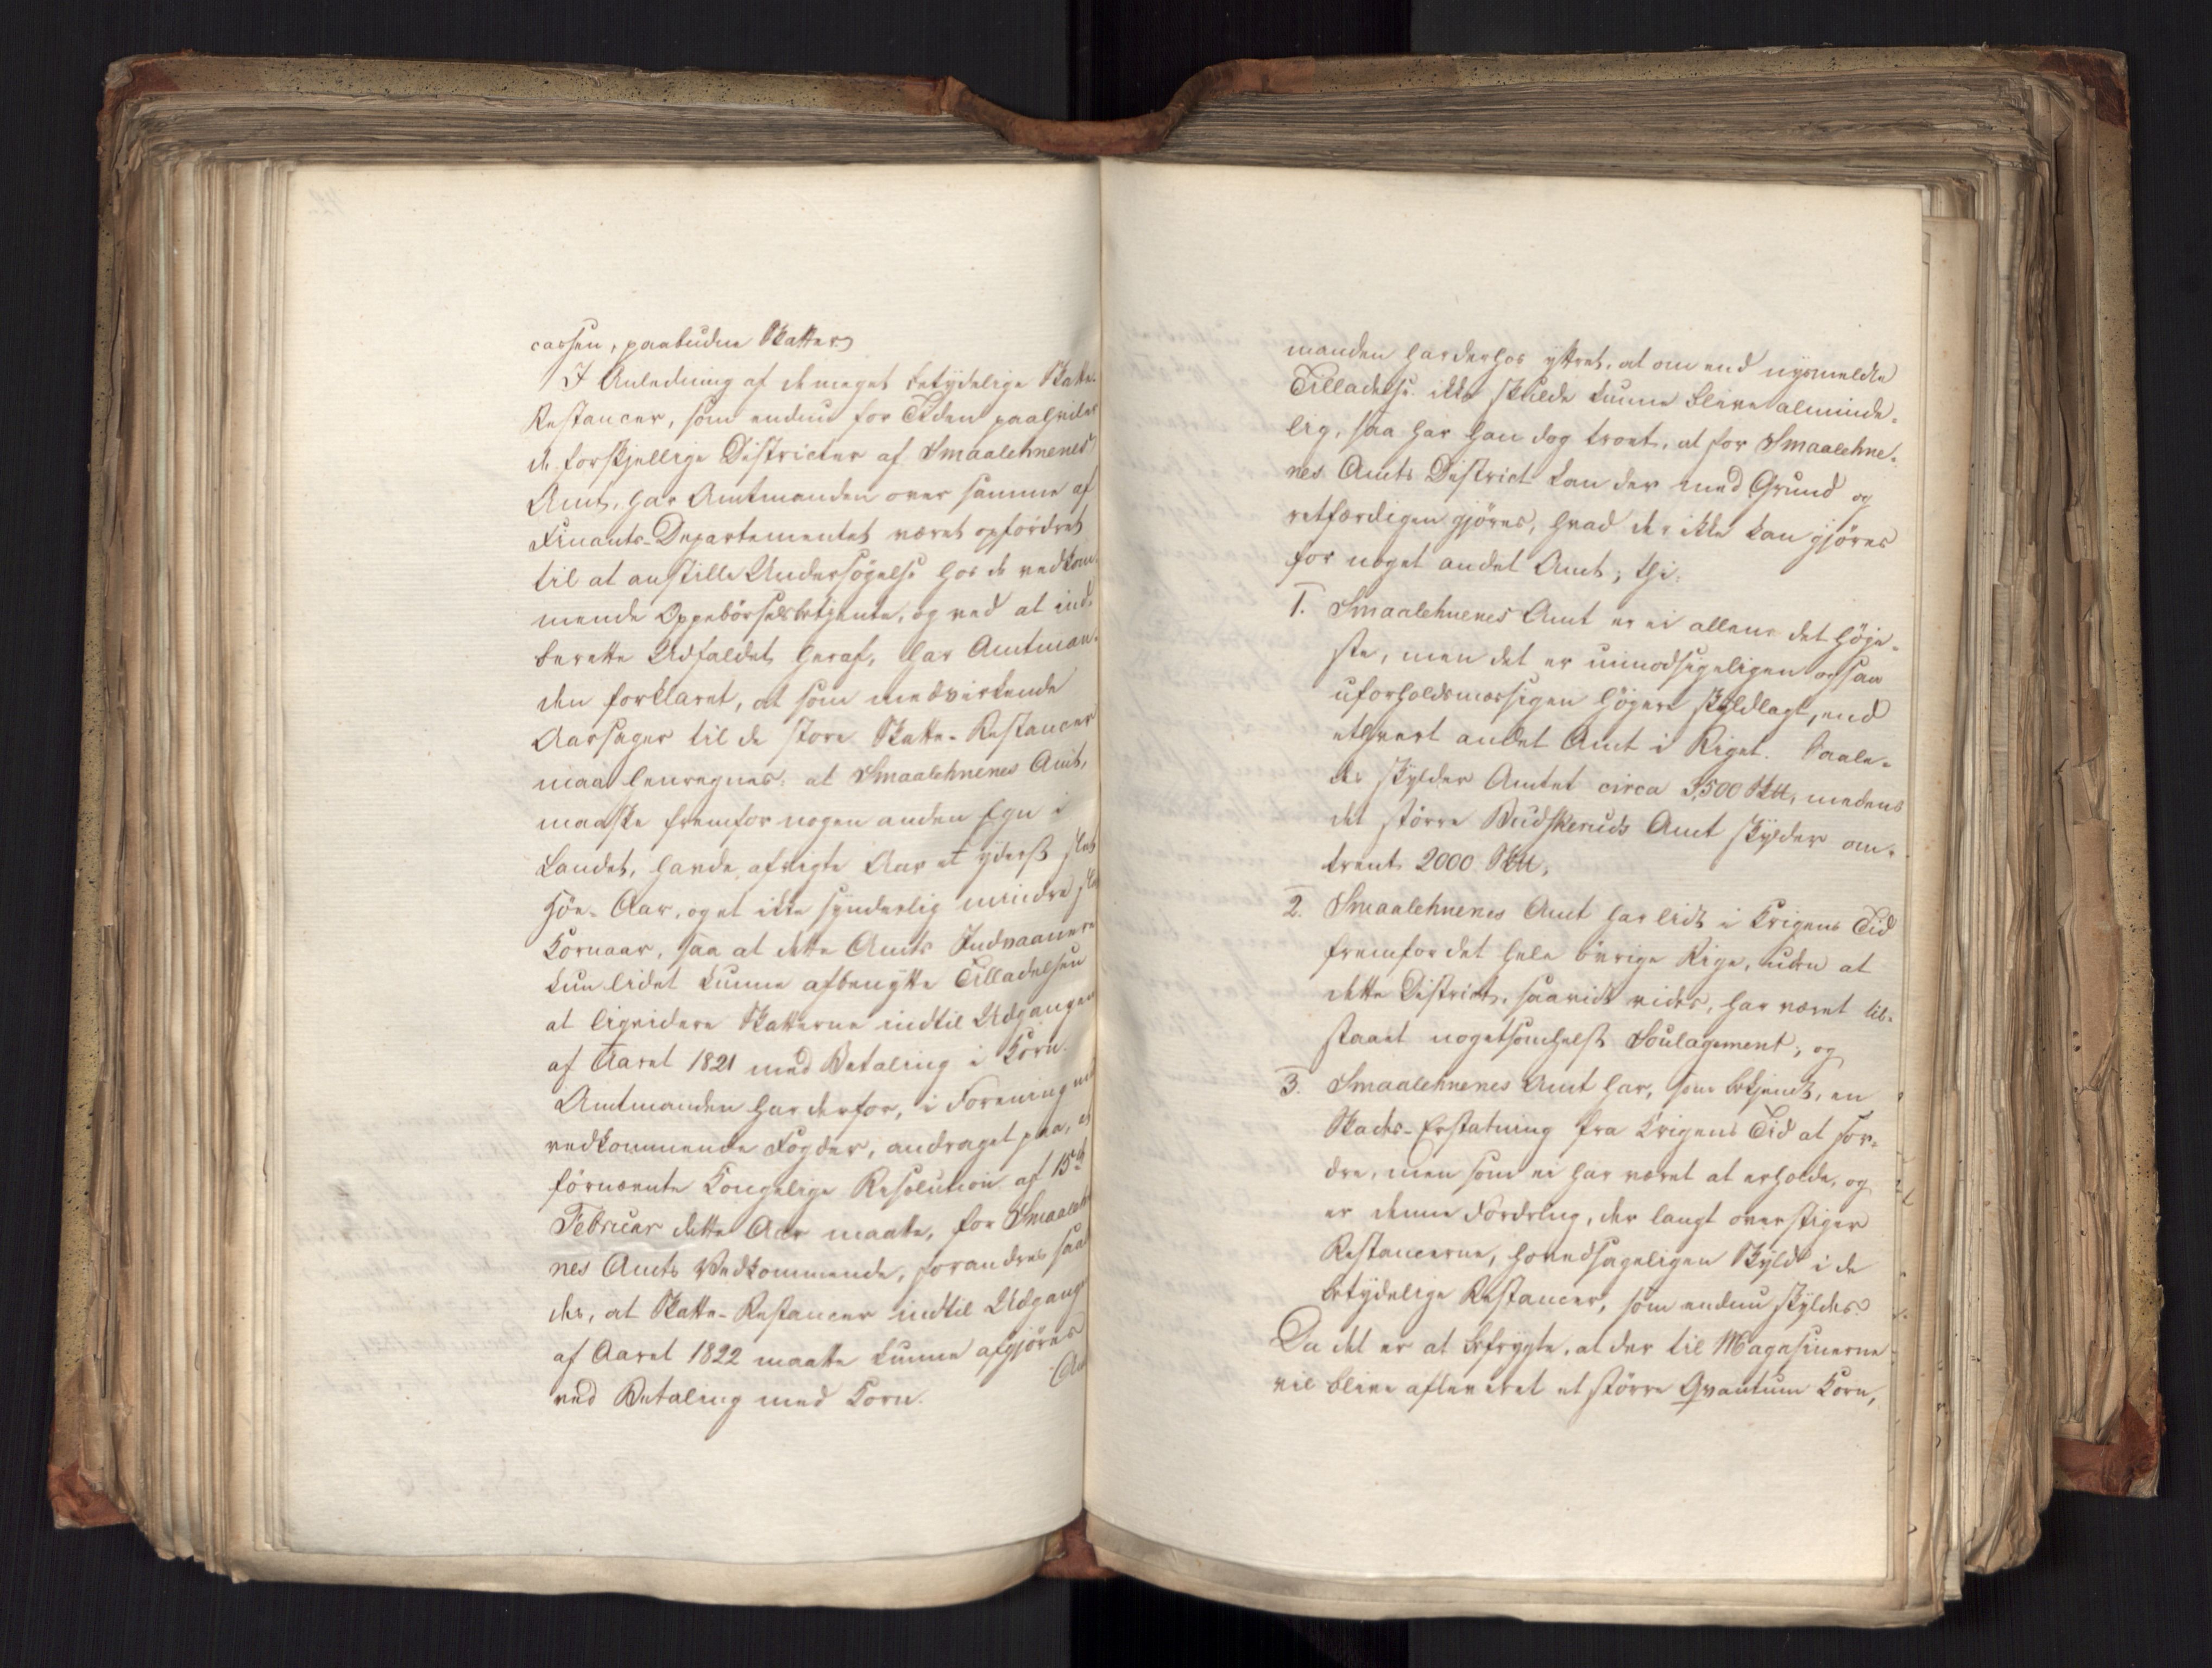 cassen, paabudne Skatter.
I Anledning af de meget betydelige Skatte-
Restancer, som endnu for Tiden paahviler
de forskjellige Districter af Smaalehnenes
Amt, har Amtmanden over samme af
Finants-Departementet været opfordret
til at anstille Undersøgelse hos de vedkom-
mende Oppebørselsbetjente, og ved at ind-
berette Udfaldet heraf, har Amtman-
den forklaret, at som medvirkende
Aarsager til de store Skatte-Restancer
maa henregnes: at Smaalehnenes Amt,
maaske fremfor nogen anden Egn i
Landet, havde afvigte Aar et yderst slet
Høe-Aar, og et ikke synderlig mindre slet
Kornaar, saa at dette Amts Indvaanere
kun lidet kunne afbenytte Tilladelsen
at liqvidere Skatterne indtil Udgangen
af Aaret 1821 med Betaling i Korn.
Amtmanden har derfor, i Forening med
vedkommende Fogder, andraget paa, at
førnævnte Kongelige Resolution af 15de
Februar dette Aar maatte, for Smaaleh
nes Amts Vedkommende, forandres saale
des, at Skatte-Restancer indtil Udgangen
af Aaret 1822 maatte kunne afgjøres
ved Betaling med Korn.
Amt
manden har derhos yttret, at om end nysmeldte
Tilladelse ikke skulde kunne blive alminde-
lig, saa har han dog troet, at for Smaalehne-
nes Amts District kan der med Grund og
retfærdigen gjøres, hvad der ikke kan gjøres
for noget andet Amt; thi:
1. Smaalehnenes Amt er ei allene det høje-
ste, men det er uimodsigeligen ogsaa
uforholdsmæssigen høyere skyldlagt, end
ethvert andet Amt i Riget. Saale-
des skylder Amtet circa 3,500 Sktt, medens
det større Budskeruds Amt skylder om-
trent 2000 Sktt,
2. Smaalehnenes Amt har lidt i Krigens Tid
fremfor det hele øvrige Rige, uden at
dette District, saavidt vides, har været til-
staaet nogetsomhelst Soulagement; og
3. Smaalehnenes Amt har, som bekjendt, en
Skades-Erstatning fra Krigens Tid at for-
dre, men som ei har været at erholde, og
er denne Fordring, der langt overstiger
Restancerne, hovedsageligen Skyld i de
betydelige Restancer, som endnu skyldes.
Da det er at befrygte, at der til Magasinerne
vil blive afleveret et større Qvantum Korn,